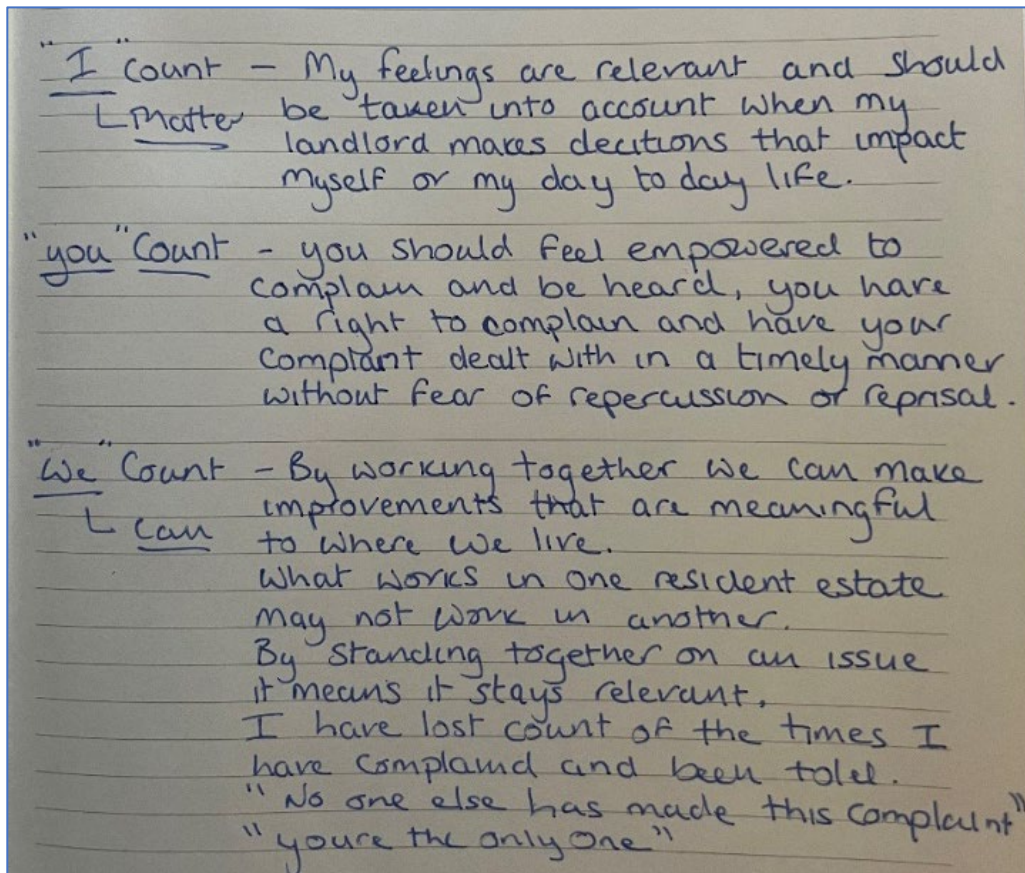 "I" Count - My feelings are relevant and should
Matter be taken into account when my
landlord makes decitions that impact
myself or my day to day life.
"you" Count - you should feel empowered to
complain and be heard, you have
a right to complain and have your
complant dealt with in a timely manner
without fear of repercussion or reprisal.
"We" Count - By working together we can make
improvements that are meaningful
can to where we live.
What works in one resident estate
may not work in another.
By standing together on an issue
it means it stays relevant.
I have lost count of the times I
have complaind and been told.
"No one else has made this complaint"
"youre the only one"